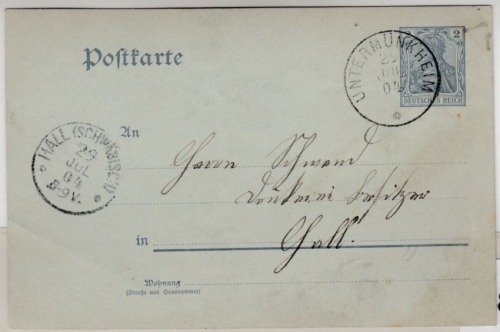 Postkarte
2
DEUTSCHES REICH
UNTERMÜNKHEIM
29
JUL
04
HALL (SCHWÄBISCH)
29
JUL
04
8-9V.
An Herrn Schwend
Druckerei besitzer
in Hall.
Wohnung
(Straße und Hausnummer)